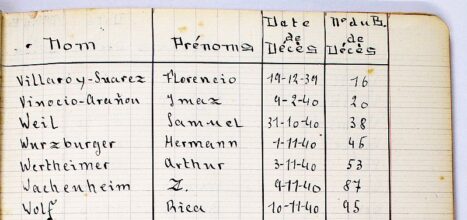 Nom Prénoms Date de Décès N° du B. de Décès
Villaroy-Suarez Florencio 19-12-39 16
Vinocio-Arañou Ymaz 9-2-40 20
Weil Samuel 31-10-40 38
Wurzburger Hermann 1-11-40 45
Wertheimer Arthur 3-11-40 53
Wachenheim Z. 9-11-40 87
Wolf Rica 10-11-40 95